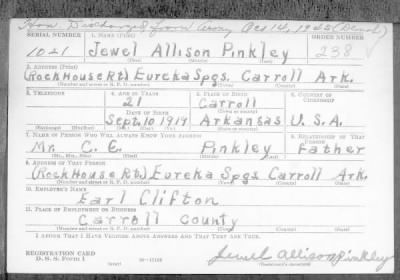 Hon Discharged from Army Oct 14, 1943 (Demob)
SERIAL NUMBER 1. NAME (Print) ORDER NUMBER
1021 Jewel Allison Pinkley 238
(First) (Middle) (Last)
2. ADDRESS (Print)
(Rock House Rt) Eureka Spgs. Carroll Ark.
(Number and street or R. F. D. number) (Town) (County) (State)
3. TELEPHONE 4. AGE IN YEARS 5. PLACE OF BIRTH 6. COUNTRY OF CITIZENSHIP
21 Carroll
(Town or county)
DATE OF BIRTH
Sept. 10 1919 Arkansas U.S.A.
(Exchange) (Number) (Mo.) (Day) (Yr.) (State or country)
7. NAME OF PERSON WHO WILL ALWAYS KNOW YOUR ADDRESS 8. RELATIONSHIP OF THAT PERSON
Mr. C. E. Pinkley Father
(Mr., Mrs., Miss) (First) (Middle) (Last)
9. ADDRESS OF THAT PERSON
(Rock House Rt.) Eureka Spgs. Carroll Ark.
(Number and street or R. F. D. number) (Town) (County) (State)
10. EMPLOYER'S NAME
Earl Clifton
11. PLACE OF EMPLOYMENT OR BUSINESS
Carroll County
(Number and street or R. F. D. number) (Town) (County) (State)
I AFFIRM THAT I HAVE VERIFIED ABOVE ANSWERS AND THAT THEY ARE TRUE.
REGISTRATION CARD
D. S. S. Form 1
Jewel Allison Pinkley
(Registrant's signature)